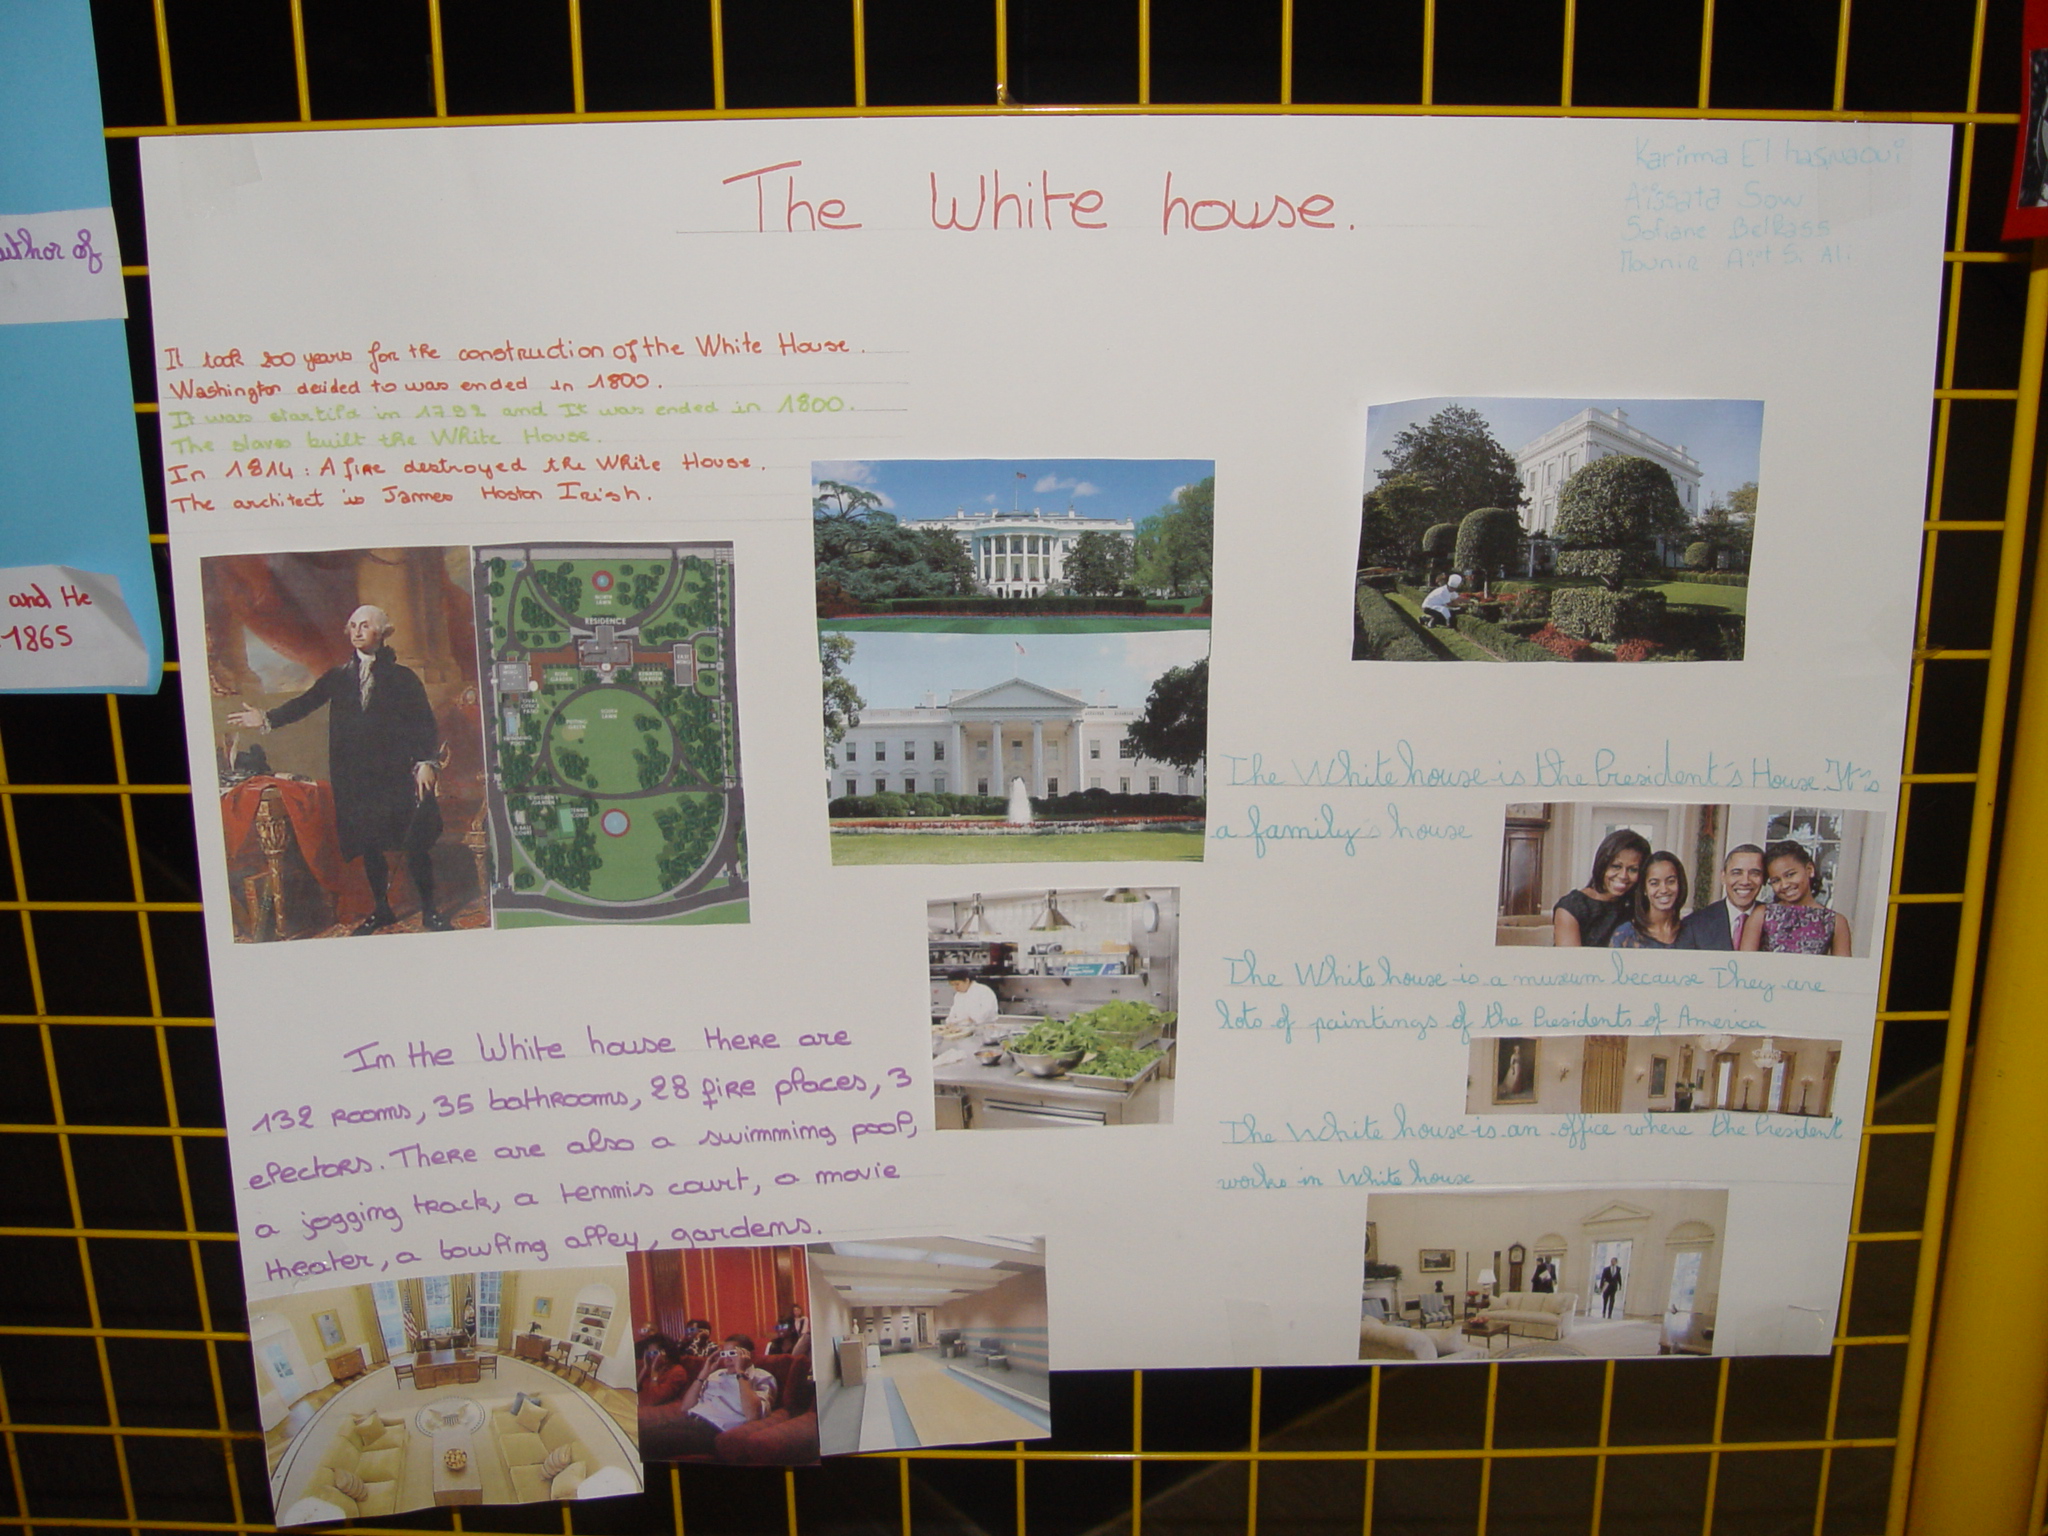 The White house.
Karima El hasnaoui
Aïssata Sow
Sofiane Belkass
Mounir Aït Si Ali
uthor of
and He
1865
It took 200 years for the construction of the White House.
Washington decided to was ended in 1800.
It was startild in 1792 and It was ended in 1800.
The slaves built the White House.
In 1814 : A fire destroyed the White House.
The architect is James Hoston Irish.
NORTH LAWN
RESIDENCE
WEST WING
EAST WING
ROSE GARDEN
SOUTH LAWN
PUTTING GREEN
SWIMMING POOL
TENNIS COURT
The White house is the President's House. It's
a family's house
The White house is a museum because They are
lots of paintings of the Presidents of America
The White house is an office where the President
works in White house
In the White house there are
132 rooms, 35 bathrooms, 28 fire places, 3
electors. There are also a swimming pool,
a jogging track, a tennis court, a movie
theater, a bowling alley, gardens.